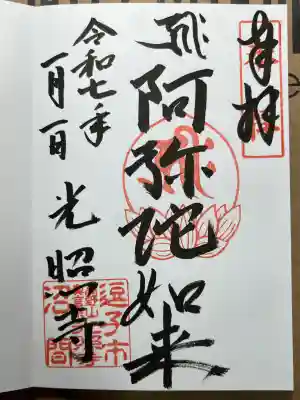 奉拝
阿弥陀如来
令和七年
一月一日
光照寺
逗子市
沼間